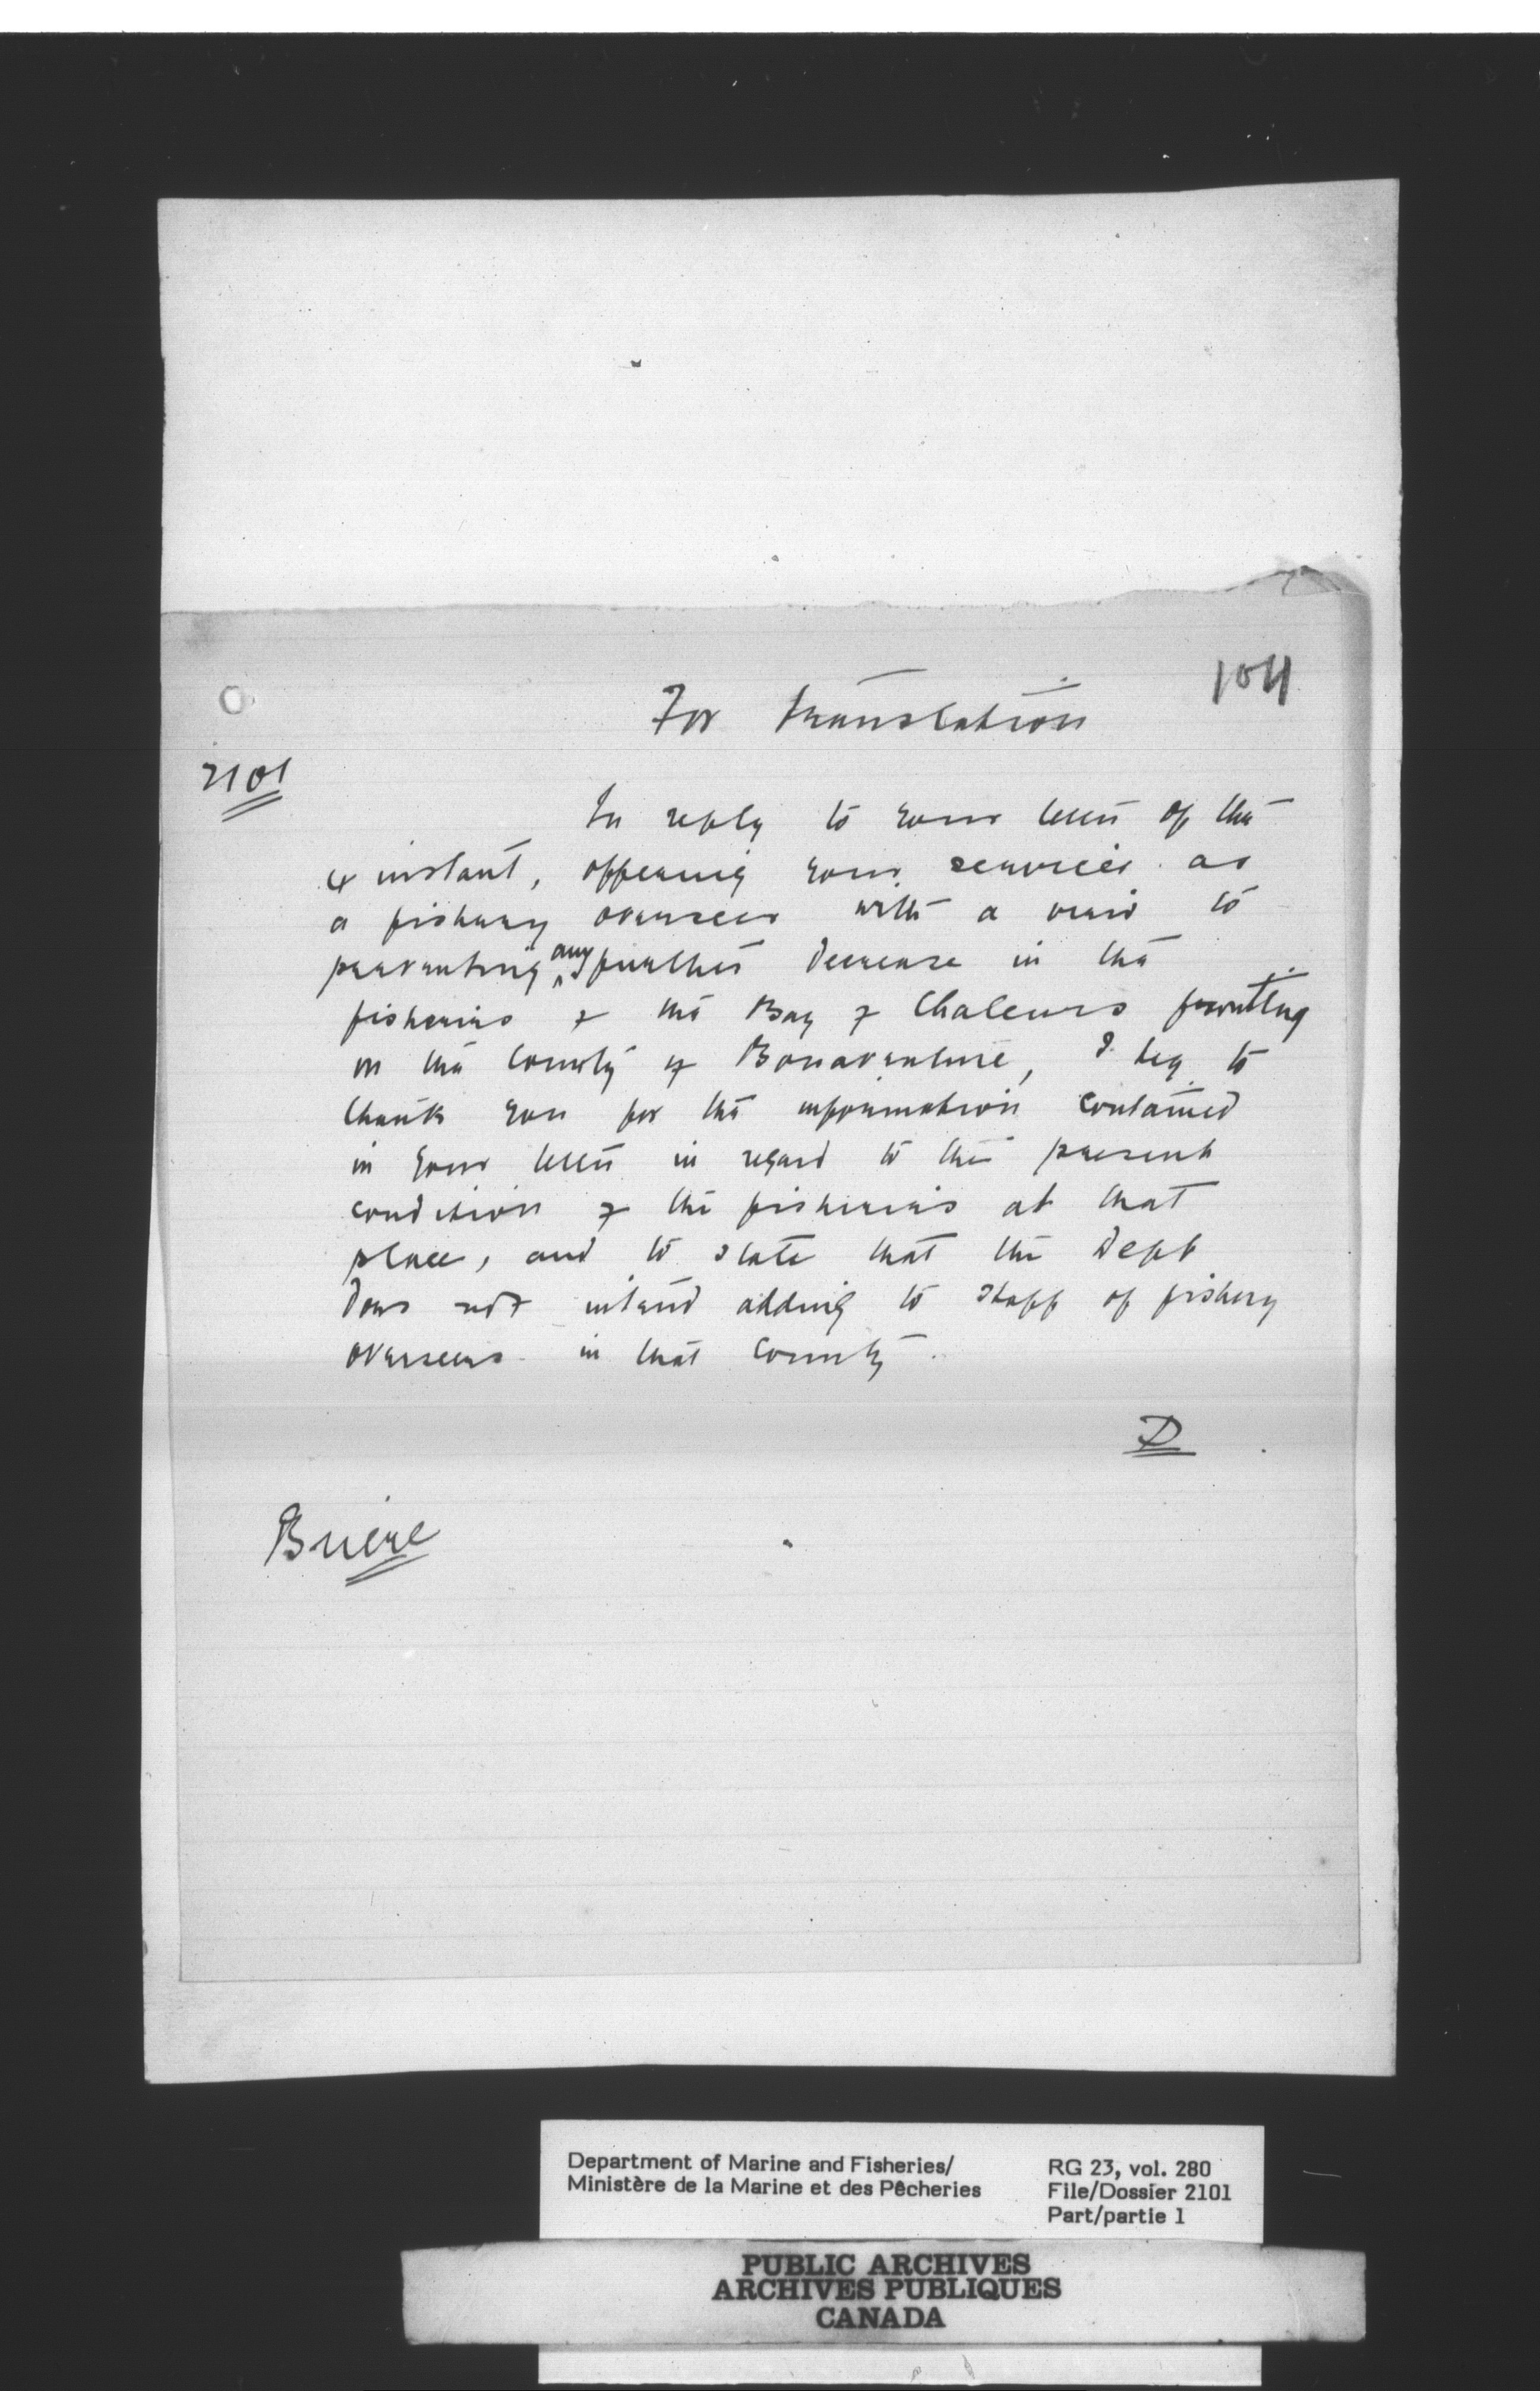 104
For translation
2101
In reply to your letter of the
4 instant, offering your services as
a fishery overseer with a view to
preventing any further decrease in the
fisheries of the Bay of Chaleurs fronting
on the County of Bonaventure, I beg to
thank you for the information contained
in your letter in regard to the present
condition of the fisheries at that
place, and to state that the Dept
does not intend adding to staff of fishery
overseers in that County.
D
Brière
Department of Marine and Fisheries/
Ministère de la Marine et des Pêcheries
RG 23, vol. 280
File/Dossier 2101
Part/partie 1
PUBLIC ARCHIVES
ARCHIVES PUBLIQUES
CANADA